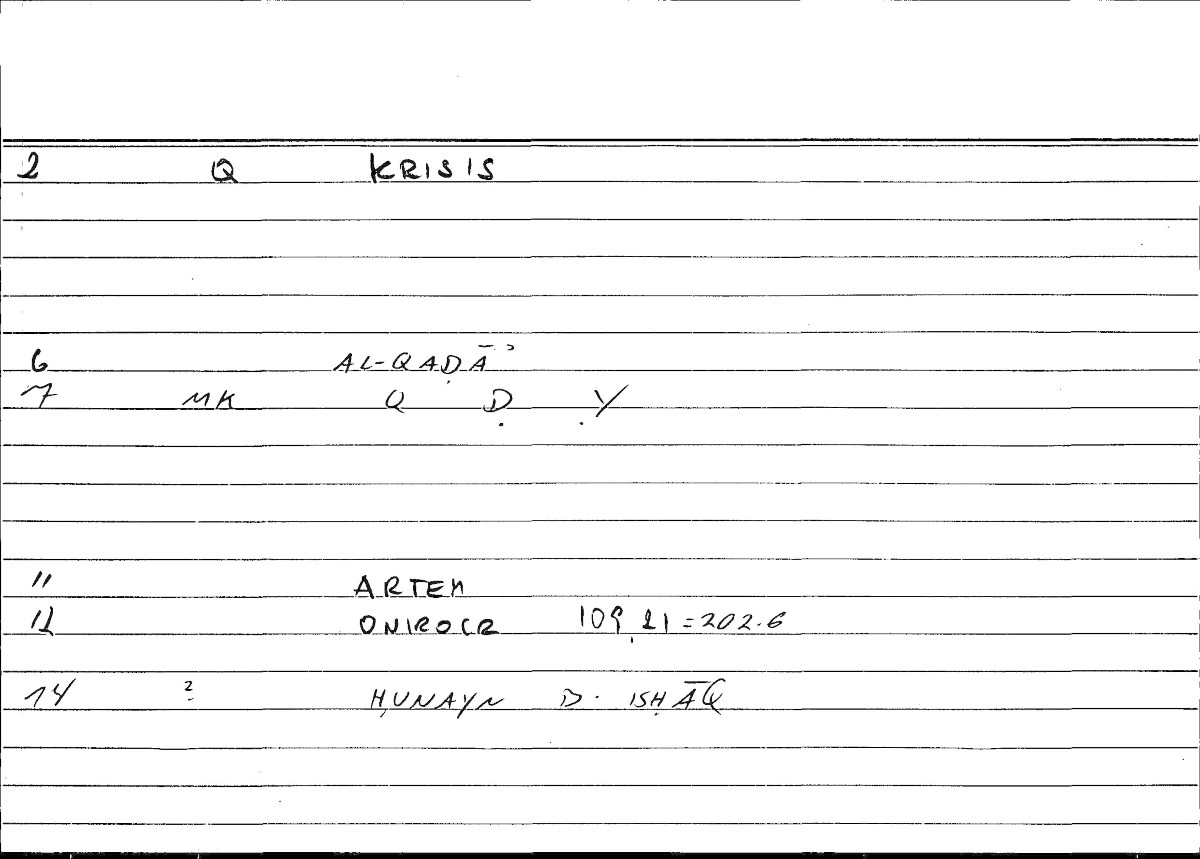 2 Q KRISIS
6 AL-QAḌĀʾ
7 MK Q Ḍ .Y
11 ARTEM
12 ONIROCR 109,21=202.6
14 ? ḤUNAYN B. ISḤĀQ